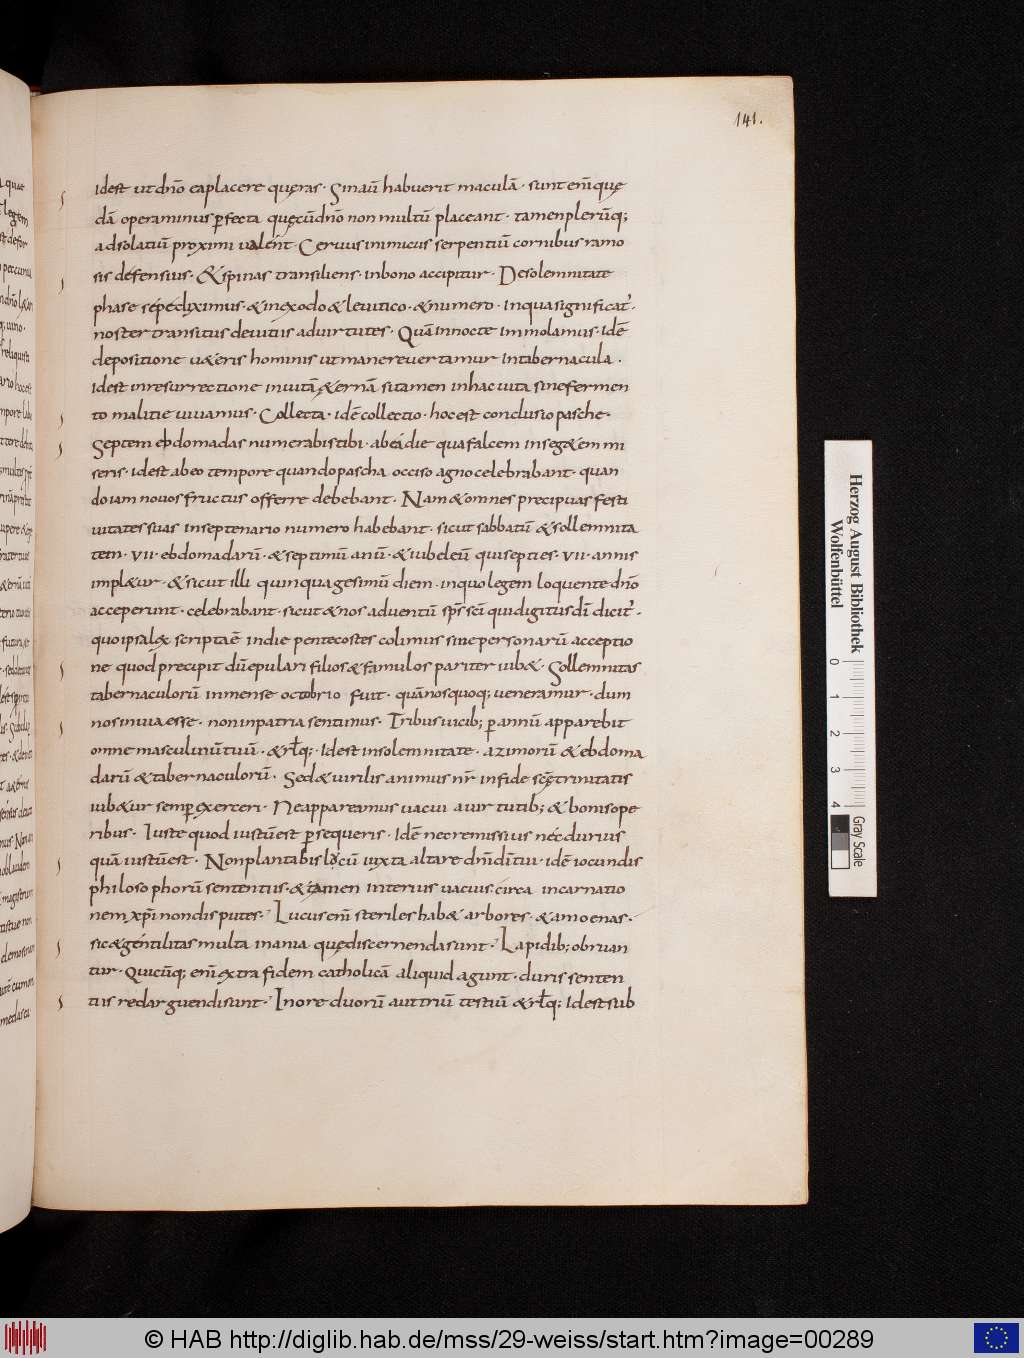 141.
idest ut dño ea placere quęras · Sin aū habuerit maculā · sunt eni᷒ quę
dā opera minus ꝑfecta quę cū dño non multū placeant · tamen plerūq;
ad solatiū proximi ualent · Ceruus inimicus serpentiū cornibus ramo
sis defensius · & spinas transiliens · in bono accipitur · De solemnitate
phase sepe diximus · & in exodo & leuitico · & numero · in qua significat᷒ ·
noster transitus de uitiis ad uirtutes · Quā in nocte immolamus · idē
depositione ueteris hominis ut mane reuertamur in tabernacula ·
idest in resurrectione in uitā &ernā si tamen in hac uita sine fermen
to malitie uiuamus · Collecta · idē collectio · hoc est conclusio pasche ·
Septem ebdomadas numerabis tibi · ab ea die qua falcem in seg&em mi
seris · idest ab eo tempore quando pascha occiso agno celebrabant · quan
do iam nouos fructus offerre debebant · Nam & omnes precipuas festi
uitates suas in septenario numero habebant · sicut sabbatū & sollemnita
tem · VII · ebdomadarū · & septimū anū · & iubeleū qui septies · VII · annis
impl&ur · & sicut illi quinquagesimū diem · in quo legem loquente dño
acceperunt · celebrabant · sicut & nos aduentū sps̄ sc̄i qui digitus dī dicit᷒ ·
quo ipsa lex scripta ē in die pentecostes colimus sine personarū acceptio
ne quod precipit dū epulari filios & famulos pariter iub& · Sollemnitas
tabernaculorū in mense octobrio fuit · quā nos quoq; ueneramur · dum
nos in uia esse · non in patria sentimus · Tribus uicib; ꝑ annū apparebit
omne masculinū tuū · & rlq; · idest in solemnitate · azimorū & ebdoma
darū & tabernaculorū · Sed & uirilis animus nr̄ in fide scę trinitatis
iub&ur semꝑ exerceri · Ne appareamus uacui a uirtutib; & bonis ope
ribus · Iuste quod iustū est ꝑsequeris · Idē nec remissius nec durius
quā iustū est · Non plantabis lucū iuxta altare dn̄i dī tui · idē iocundis
philosophorū sententiis · & tamen interius uacuis · circa incarnatio
nem xp̄i non disputes · Lucus eni᷒ steriles hab& arbores · & amoenas ·
sic & gentilitas multa inania quę discernenda sunt · Lapidib; obruan
tur · Quicūq; eni᷒ extra fidem catholicā aliquid agunt · duris senten
tiis redarguendi sunt · In ore duorū aut triū testiū & rlq; idest sub
Herzog August Bibliothek
Wolfenbüttel
0 1 2 3 4
Gray Scale
© HAB http://diglib.hab.de/mss/29-weiss/start.htm?image=00289